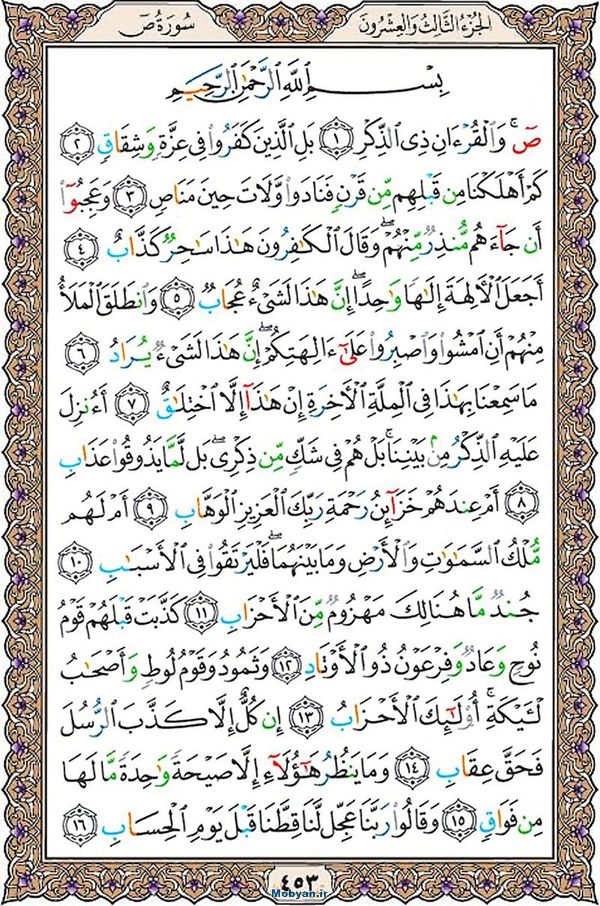 الجزء الثالث والعشرون
سورة ص
بِسْمِ ٱللَّهِ ٱلرَّحْمَٰنِ ٱلرَّحِيمِ
صٓ ۚ وَٱلْقُرْءَانِ ذِى ٱلذِّكْرِ ١ بَلِ ٱلَّذِينَ كَفَرُوا۟ فِى عِزَّةٍ وَشِقَاقٍ ٢
كَمْ أَهْلَكْنَا مِن قَبْلِهِم مِّن قَرْنٍ فَنَادَوا۟ وَّلَاتَ حِينَ مَنَاصٍ ٣ وَعَجِبُوٓا۟
أَن جَآءَهُم مُّنذِرٌ مِّنْهُمْ ۖ وَقَالَ ٱلْكَٰفِرُونَ هَٰذَا سَٰحِرٌ كَذَّابٌ ٤
أَجَعَلَ ٱلْءَالِهَةَ إِلَٰهًا وَٰحِدًا ۖ إِنَّ هَٰذَا لَشَىْءٌ عُجَابٌ ٥ وَٱنطَلَقَ ٱلْمَلَأُ
مِنْهُمْ أَنِ ٱمْشُوا۟ وَٱصْبِرُوا۟ عَلَىٰٓ ءَالِهَتِكُمْ ۖ إِنَّ هَٰذَا لَشَىْءٌ يُرَادُ ٦
مَا سَمِعْنَا بِهَٰذَا فِى ٱلْمِلَّةِ ٱلْءَاخِرَةِ إِنْ هَٰذَآ إِلَّا ٱخْتِلَٰقٌ ٧ أَءُنزِلَ
عَلَيْهِ ٱلذِّكْرُ مِنۢ بَيْنِنَا ۚ بَلْ هُمْ فِى شَكٍّ مِّن ذِكْرِى ۖ بَل لَّمَّا يَذُوقُوا۟ عَذَابِ
٨ أَمْ عِندَهُمْ خَزَآئِنُ رَحْمَةِ رَبِّكَ ٱلْعَزِيزِ ٱلْوَهَّابِ ٩ أَمْ لَهُم
مُّلْكُ ٱلسَّمَٰوَٰتِ وَٱلْأَرْضِ وَمَا بَيْنَهُمَا ۖ فَلْيَرْتَقُوا۟ فِى ٱلْأَسْبَٰبِ ١٠
جُندٌ مَّا هُنَالِكَ مَهْزُومٌ مِّنَ ٱلْأَحْزَابِ ١١ كَذَّبَتْ قَبْلَهُمْ قَوْمُ
نُوحٍ وَعَادٌ وَفِرْعَوْنُ ذُو ٱلْأَوْتَادِ ١٢ وَثَمُودُ وَقَوْمُ لُوطٍ وَأَصْحَٰبُ
لْـَٔيْكَةِ ۚ أُو۟لَٰٓئِكَ ٱلْأَحْزَابُ ١٣ إِن كُلٌّ إِلَّا كَذَّبَ ٱلرُّسُلَ
فَحَقَّ عِقَابِ ١٤ وَمَا يَنظُرُ هَٰٓؤُلَآءِ إِلَّا صَيْحَةً وَٰحِدَةً مَّا لَهَا
مِن فَوَاقٍ ١٥ وَقَالُوا۟ رَبَّنَا عَجِّل لَّنَا قِطَّنَا قَبْلَ يَوْمِ ٱلْحِسَابِ ١٦
٤٥٣
Mobyan.ir